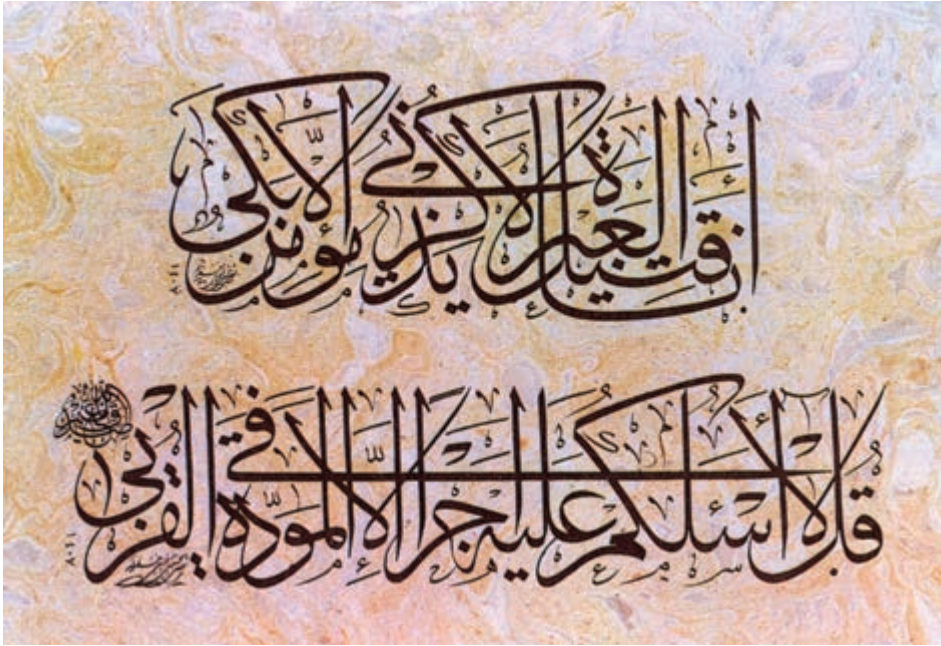 أنا قتيل العبرة لا يذكرني مؤمن إلّا بكى
قل لا أسئلكم عليه أجرا إلّا المودّة في القربى